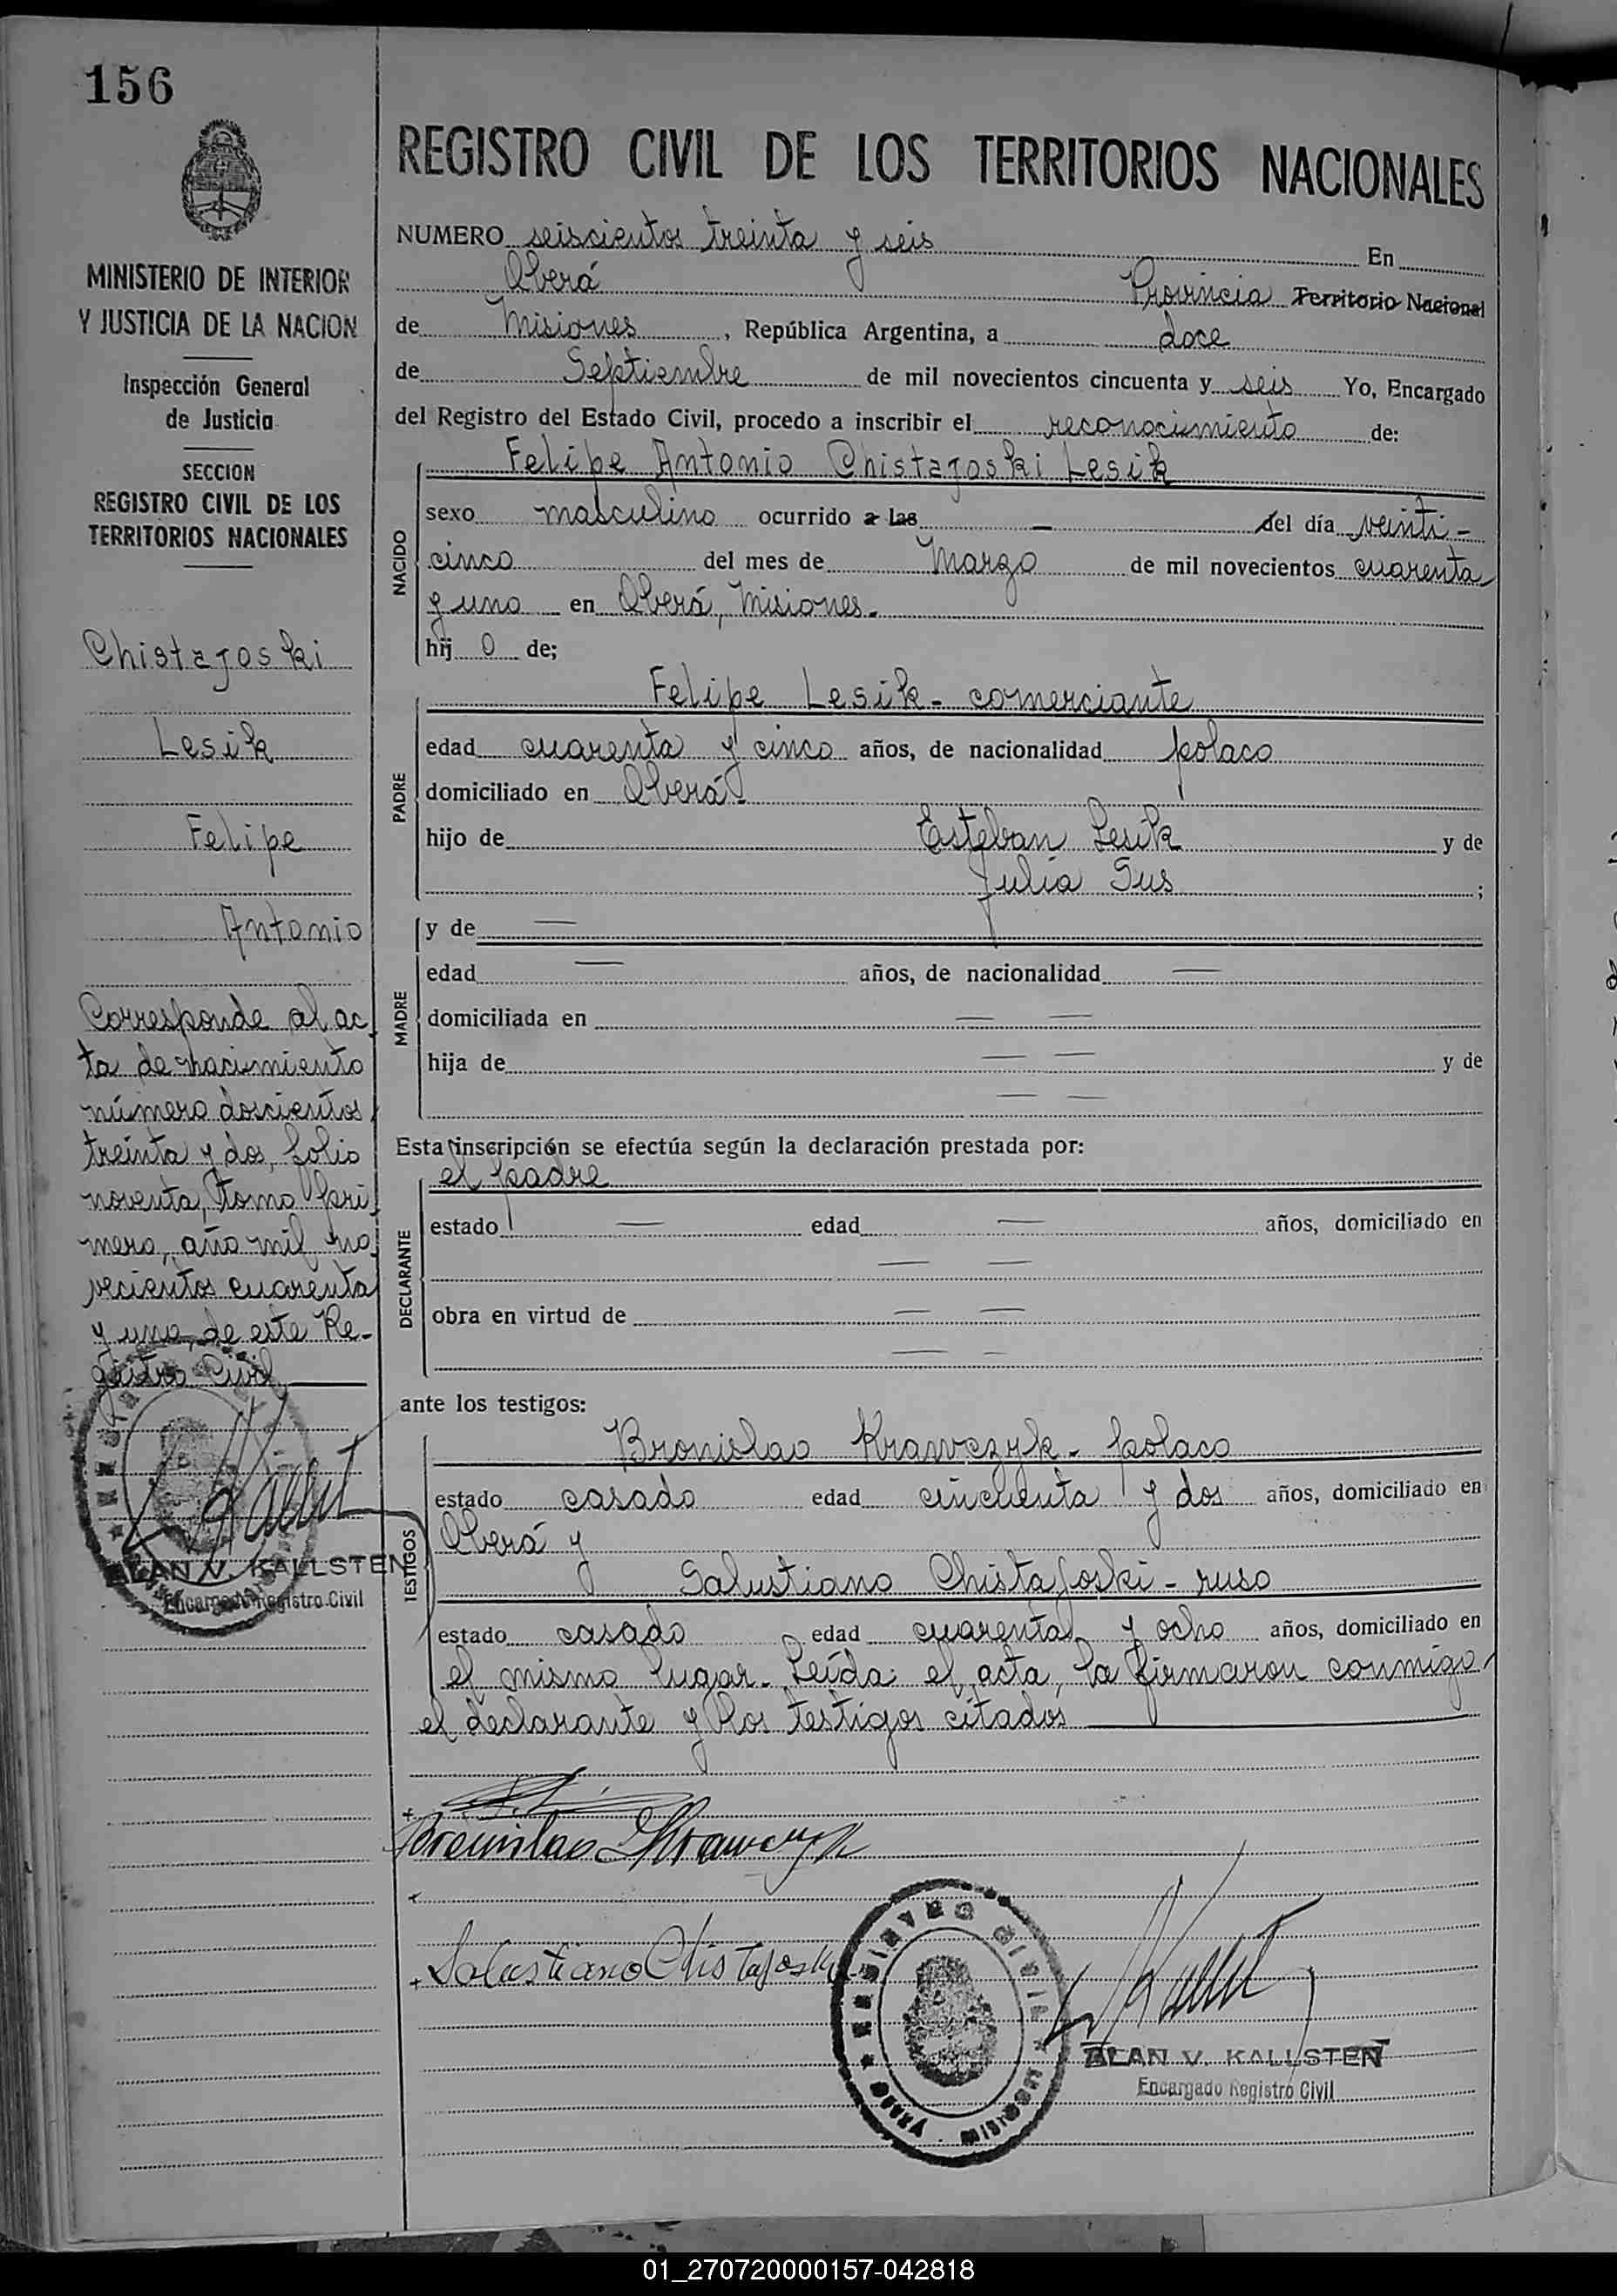 156
MINISTERIO DE INTERIOR
Y JUSTICIA DE LA NACION
Inspección General
de Justicia
SECCION
REGISTRO CIVIL DE LOS
TERRITORIOS NACIONALES
Chistajoski
Lesik
Felipe
Antonio
Corresponde al ac
ta de nacimiento
número doscientos
treinta y dos, folio
noventa, tomo pri
mero, año mil no
vecientos cuarenta
y uno, de este Re-
gistro Civil
ALAN V. KALLSTEN
Encargado Registro Civil
REGISTRO CIVIL DE LOS TERRITORIOS NACIONALES
NUMERO seiscientos treinta y seis En
Oberá Provincia Territorio Nacional
de Misiones, República Argentina, a doce
de Septiembre de mil novecientos cincuenta y seis Yo, Encargado
del Registro del Estado Civil, procedo a inscribir el reconocimiento de:
NACIDO
Felipe Antonio Chistajoski Lesik
sexo masculino ocurrido a las — del día veinti-
cinco del mes de Marzo de mil novecientos cuarenta
y uno en Oberá, Misiones.
hijo de;
PADRE
Felipe Lesik - comerciante
edad cuarenta y cinco años, de nacionalidad polaco
domiciliado en Oberá.
hijo de Esteban Lesik y de
Julia Sus ;
MADRE
y de —
edad — años, de nacionalidad —
domiciliada en — —
hija de — — y de
— —
Esta inscripción se efectúa según la declaración prestada por:
DECLARANTE
el padre
estado — edad — años, domiciliado en
— —
obra en virtud de — —
— —
ante los testigos:
TESTIGOS
Bronislao Krawczyk - polaco
estado casado edad cincuenta y dos años, domiciliado en
Oberá y
Salustiano Chistajoski - ruso
estado casado edad cuarenta y ocho años, domiciliado en
el mismo lugar. Leída el acta, la firmaron conmigo
el declarante y los testigos citados
Bronislao Krawczyk
Salustiano Chistajoski
REGISTRO CIVIL
OBERA MISIONES
ALAN V. KALLSTEN
Encargado Registro Civil
01_270720000157-042818